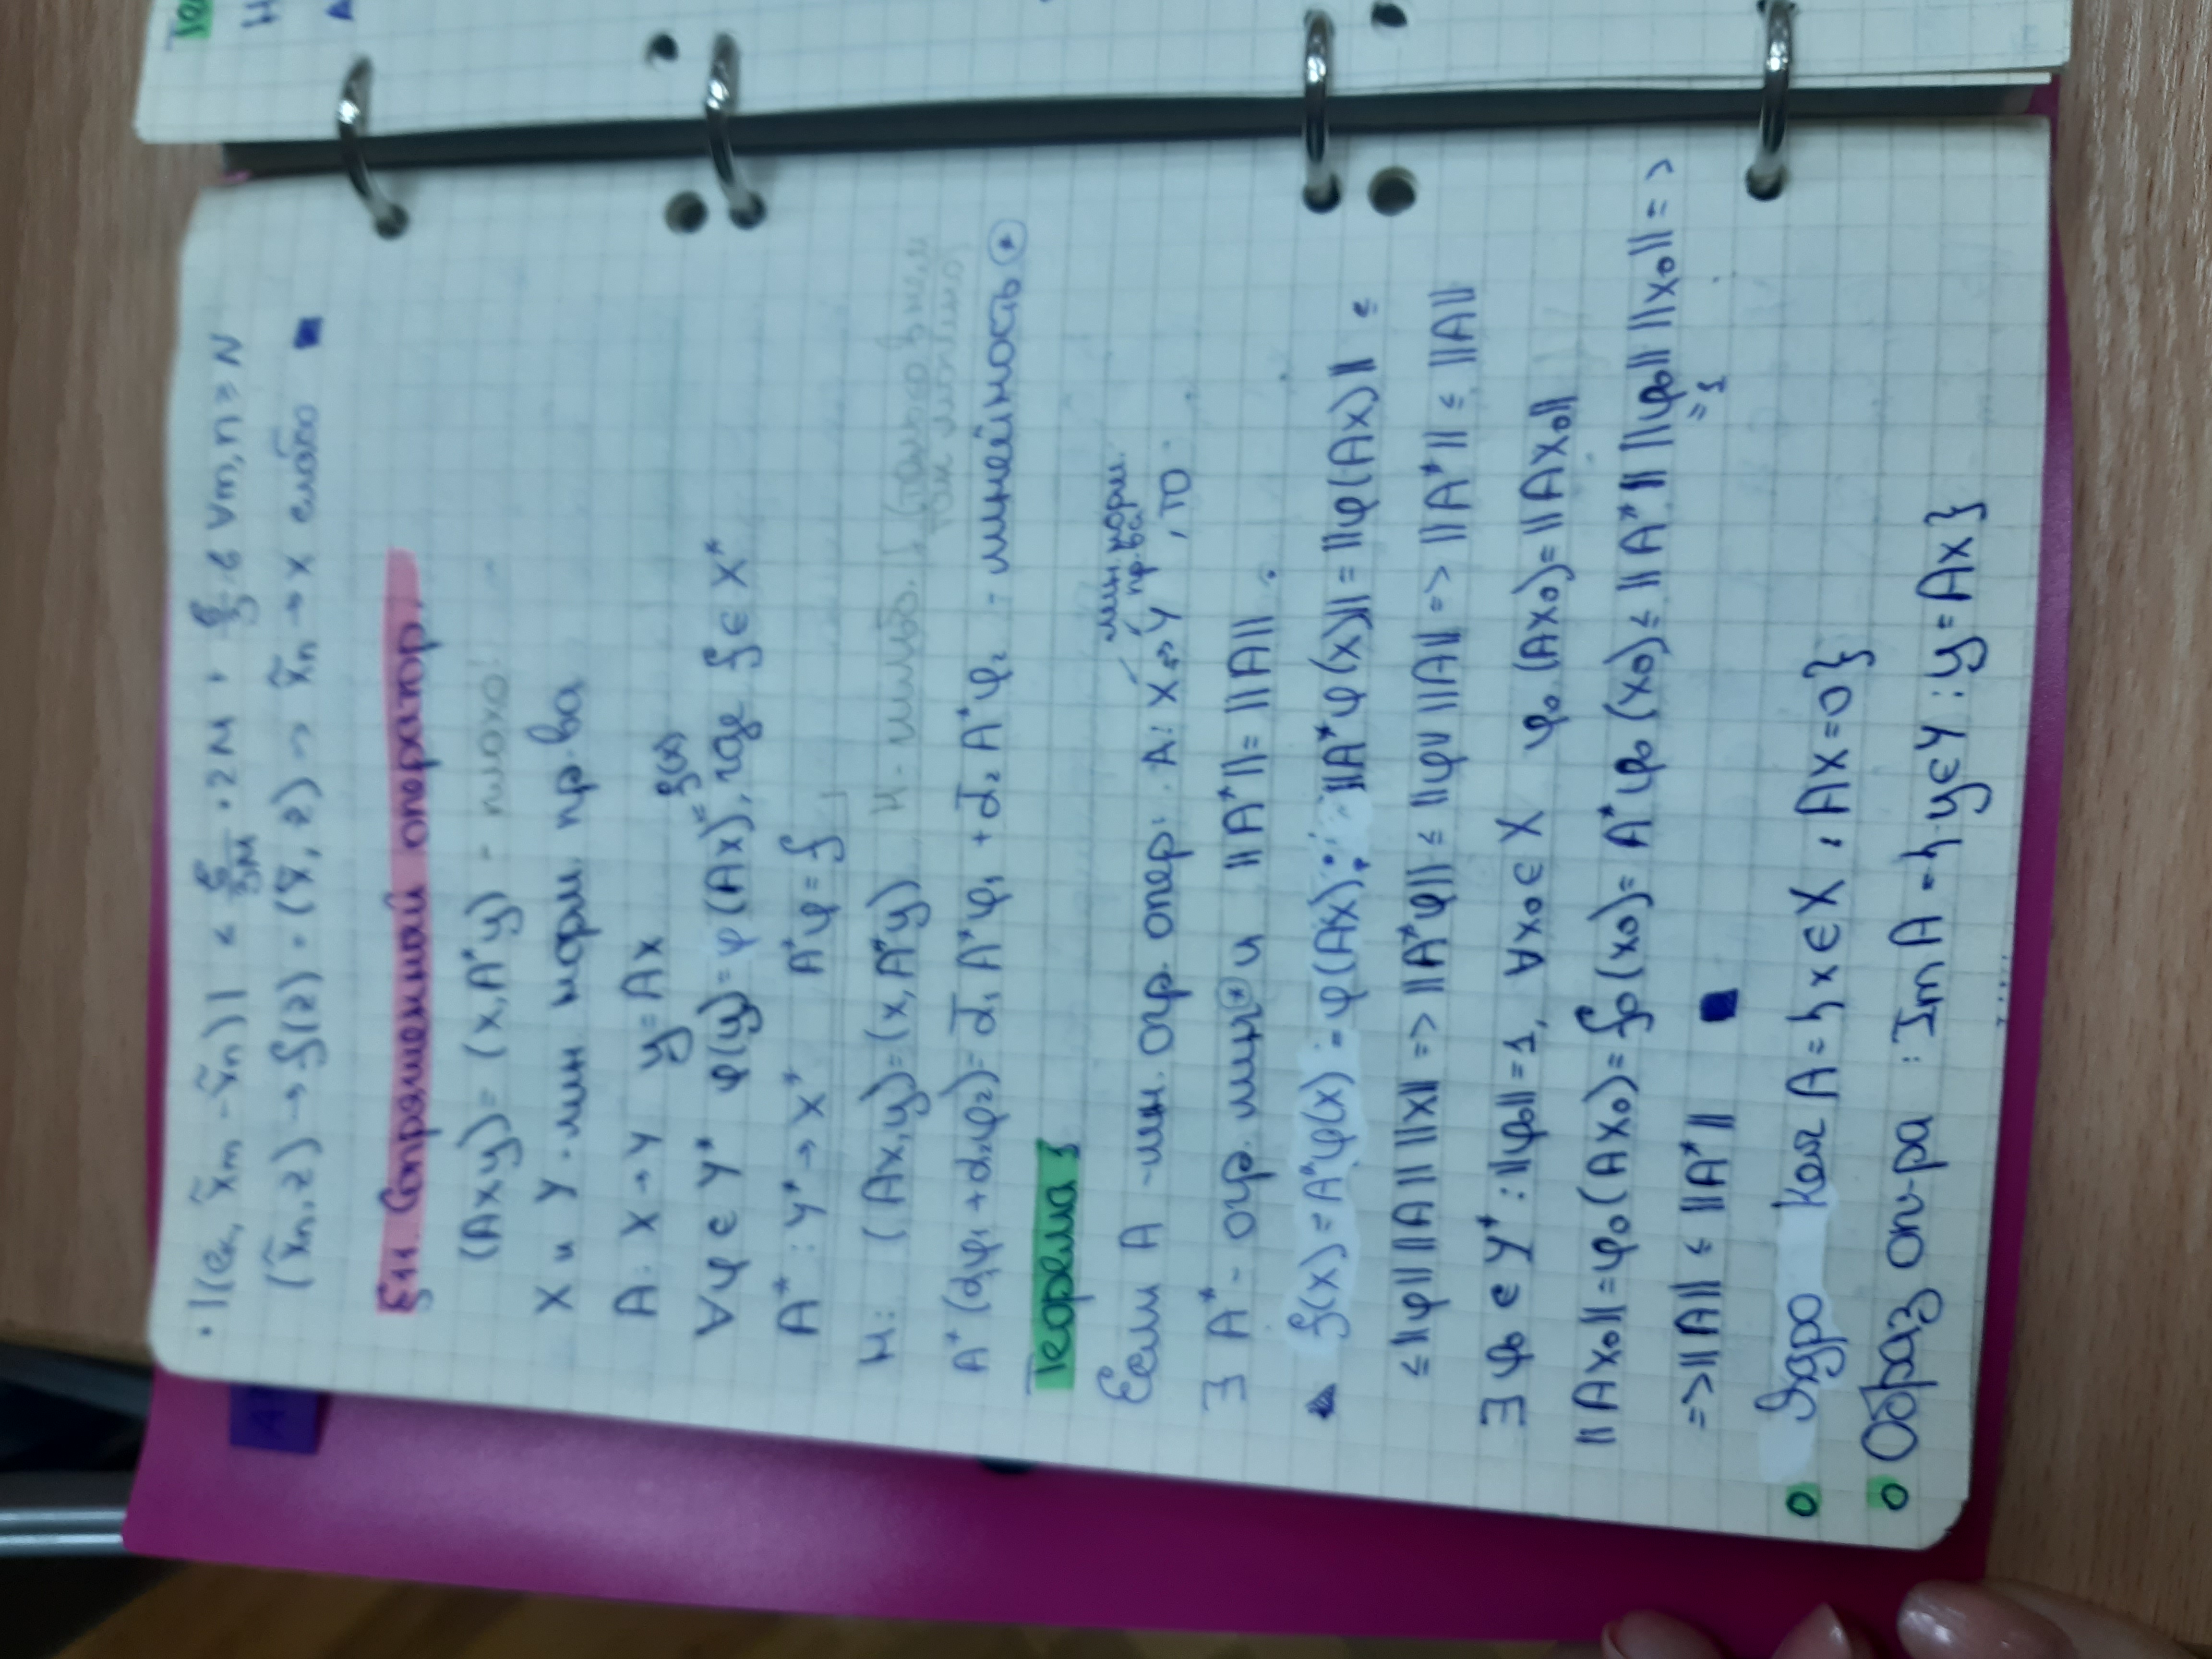 · |(e_k, x̃_m - x̃_n)| < ε/3M · 2M + ε/3 · 6 ∀m,n ≥ N
(x̃_n, z) → f(z) = (x̃, z) → x̃_n → x слабо ■
§11. Сопряженный оператор.
(Ax,y) = (x, A*y) - плохо!
X и Y - лин. норм. пр-ва
A: X → Y y = Ax
∀φ ∈ Y* φ(y) = φ(Ax) = f(x), где f ∈ X*
A*: Y* → X* A*φ = f
H: (Ax,y) = (x, A*y)
A*(α₁φ₁ + α₂φ₂) = ᾱ₁ A*φ₁ + ᾱ₂ A*φ₂ - линейность ⊛
Теорема 1
лин. норм. пр-ва
Если A - лин. огр. опер. A: X → Y, то
∃ A* - огр. лин ⊛ и ||A*|| = ||A||.
f(x) = A*φ(x) = φ(Ax); ||A*φ(x)|| = ||φ(Ax)|| ≤
≤ ||φ|| ||A|| ||x|| => ||A*φ|| ≤ ||φ|| ||A|| => ||A*|| ≤ ||A||
∃ φ₀ ∈ Y*: ||φ₀|| = 1, ∀x₀ ∈ X φ₀(Ax₀) = ||Ax₀||
||Ax₀|| = φ₀(Ax₀) = f₀(x₀) = A*φ₀(x₀) ≤ ||A*|| ||φ₀|| ||x₀|| =>
= 1
=> ||A|| ≤ ||A*|| ■
o Ядро Ker A = { x ∈ X, Ax = 0}
o Образ оп-ра : Im A = { y ∈ Y : y = Ax}